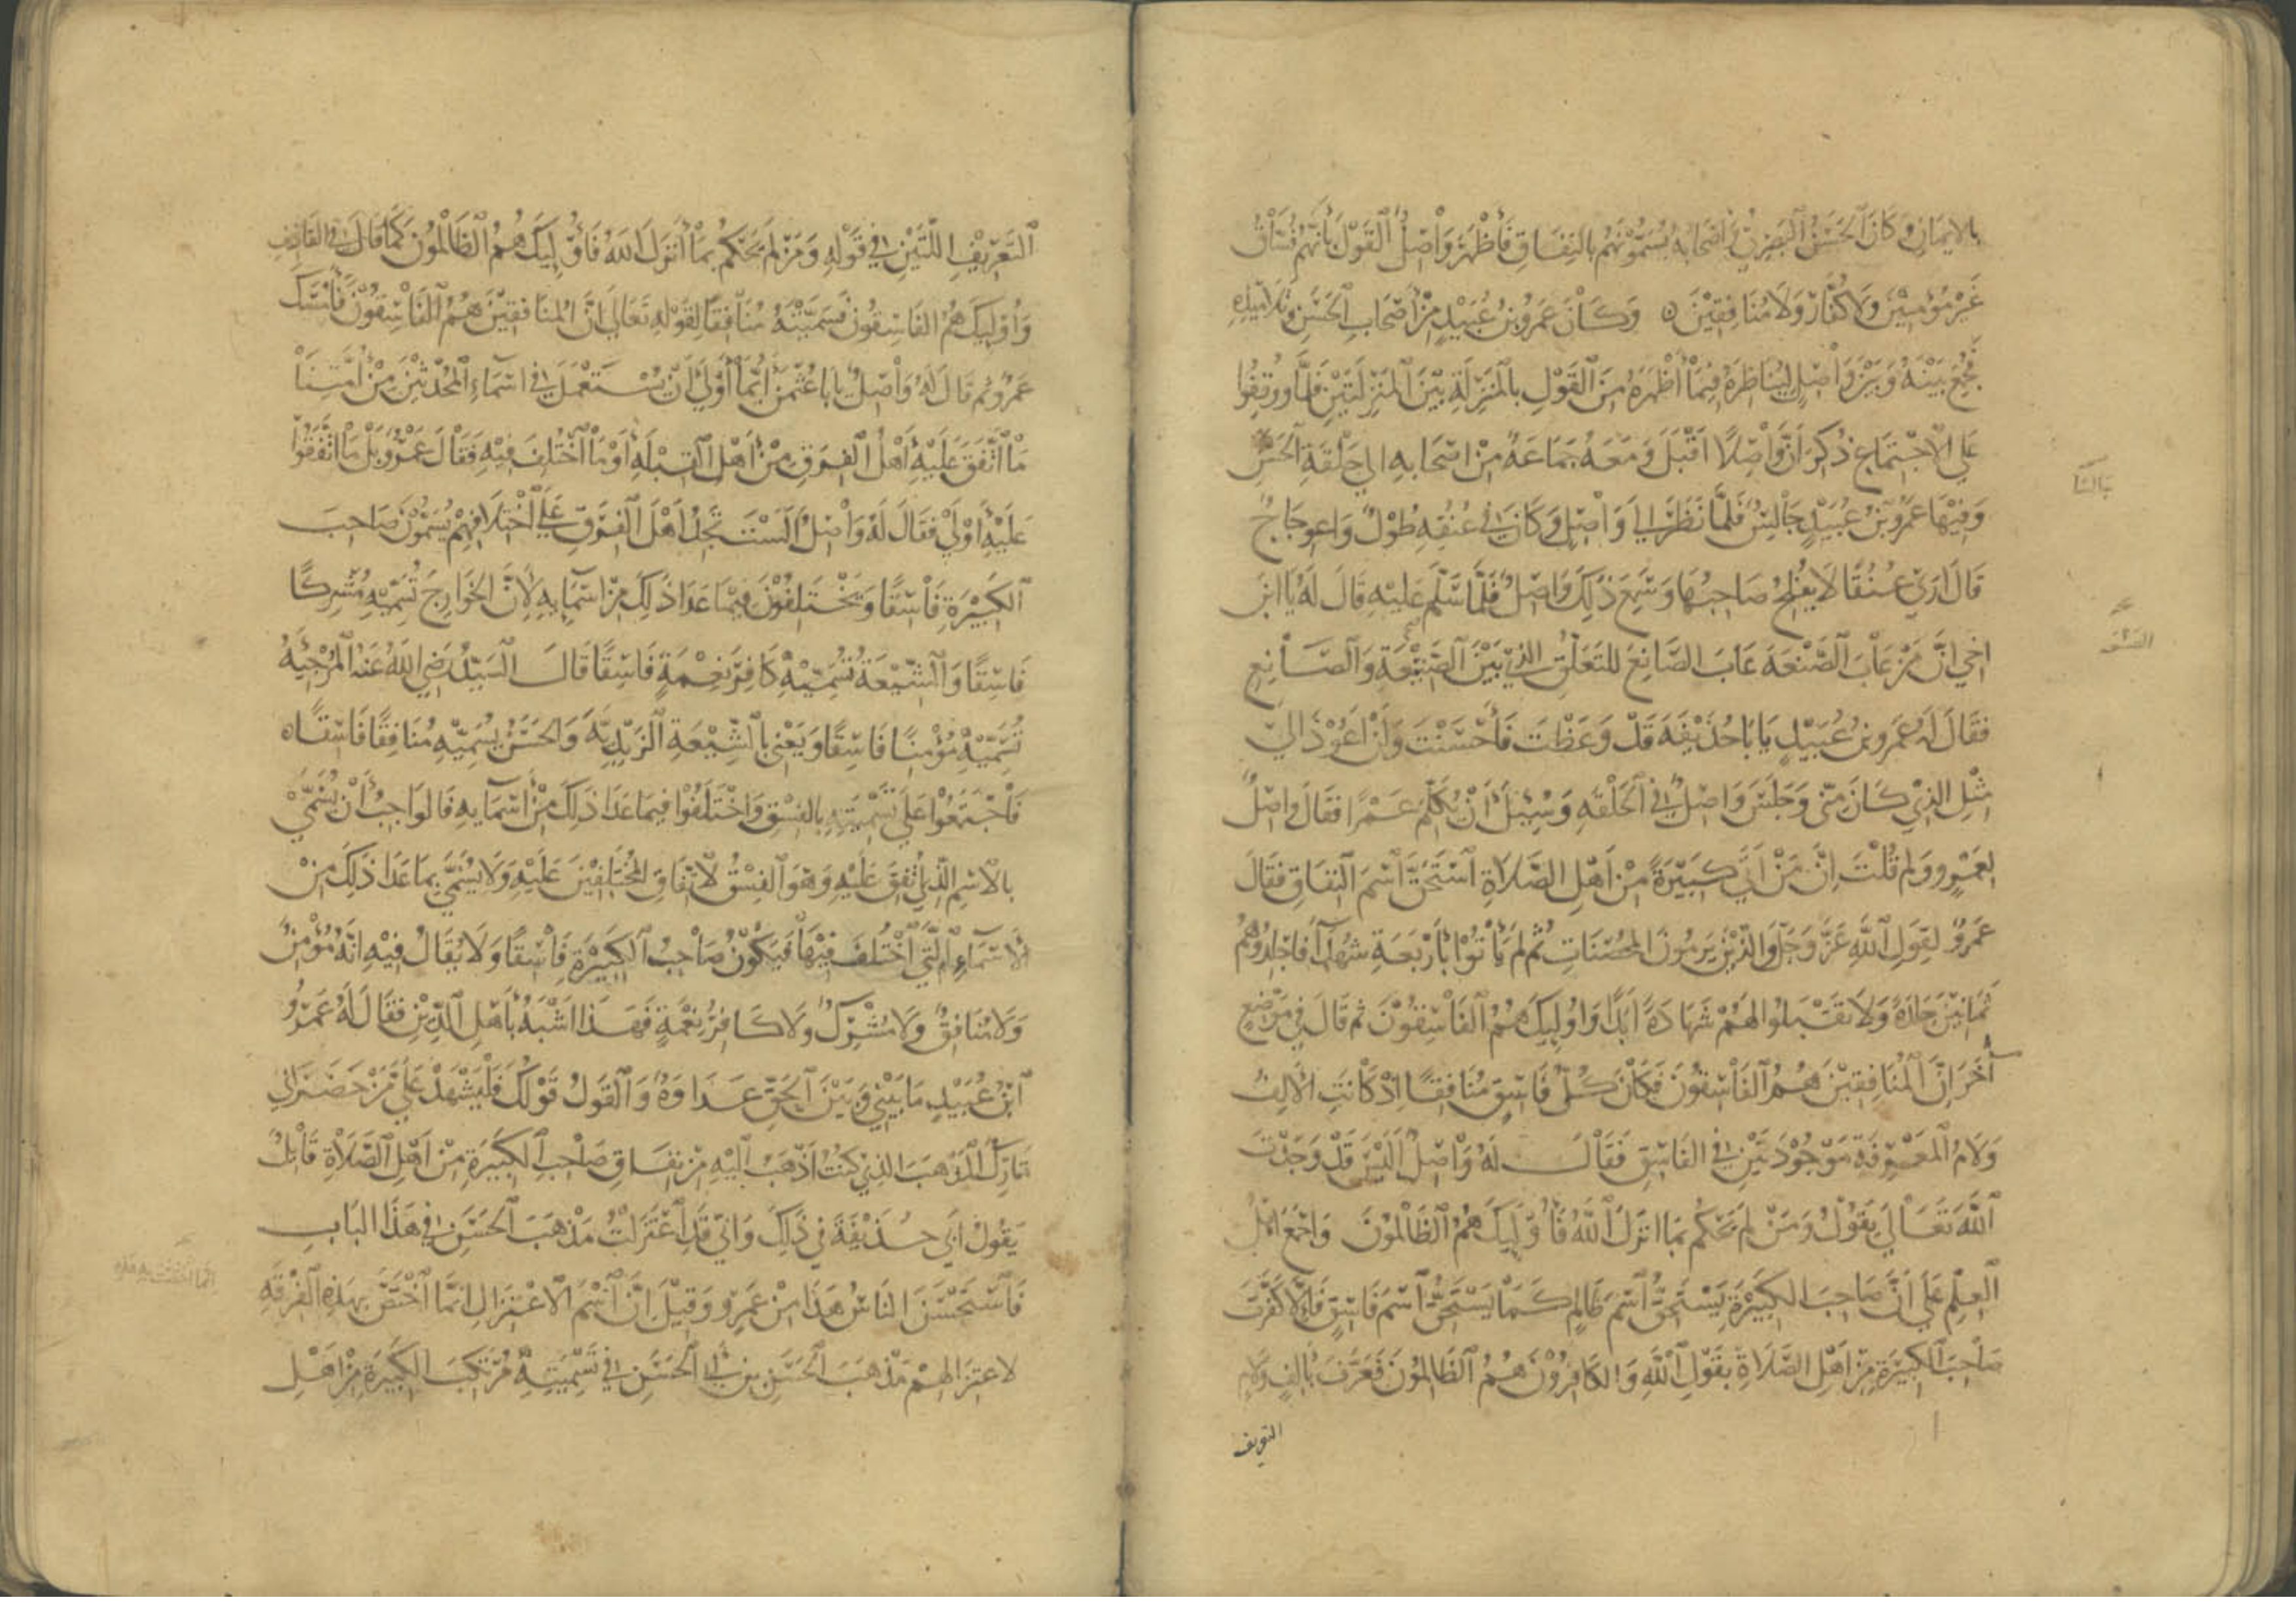 بالايمان وَكَانَ الحَسَنُ البَصْرِيُّ وَاصْحَابُه يُسَمُّونَهُم بالنِفَاقِ فَأَظْهَرَ وَاصِلُ القَوْلَ بأَنَّهُم فُسَّاقٌ
غَيْرُ مُؤمِنِيْنَ وَلَا كُفَّارٍ وَلَا مُنَافِقِيْنَ ه وَكَانَ عَمْرُو بنُ عُبَيْدٍ مِنْ أَصْحَابِ الحَسَنِ وَتَلَامِيْذِهِ
فَجُمِعَ بَيْنَهُ وَبَيْنَ وَاصِلٍ لِيُنَاظِرَهُ فِيْمَا أَظْهَرَهُ مِنَ القَوْلِ بالمَنْزِلَةِ بَيْنَ المَنْزِلَتَيْنِ فَلَمَّا ووُقِفُوا
عَلَى الاجْتِمَاعِ ذُكِرَ انَّ وَاصِلًا اَقْبَلَ وَمَعَهُ جَمَاعَةٌ مِنْ اصْحَابِهِ الى حَلْقَةِ الحَسَنِ
وَفِيْهَا عَمْرُو بْنُ عُبَيْدٍ جَالِسٌ فَلَمَّا نَظَرَ الى وَاصِلٍ وَكَانَ في عُنُقِهِ طُوْلٌ وَاعوِجَاجٌ
قَالَ ارَى عُنُقًا لَا يُفْلِحُ صَاحِبُهَا وَسَمِعَ ذَلِكَ وَاصِلٌ فَلَمَّا سَلَّمَ عَلَيْهِ قَالَ لَهُ يَا ابْنَ
اخي انَّ مَنْ عَابَ الصَّنْعَةَ عَابَ الصَّانِعَ للتَعَلُّقِ الذي بَيْنَ الصَّنْعَةِ وَالصَّانِعِ
فَقَالَ لَهُ عَمْرو بنُ عُبَيْدٍ يَا بَا حُذَيْفَةَ قَدْ وَعَظْتَ فَأَحْسَنْتَ وَلَنْ اعُوْذَ الى
مِثْلِ الذِي كَانَ مِنّى وَجَلَسَ وَاصِلٌ في الحَلْقَةِ وَسُئِلَ أَنْ يُكَلِّمَ عَمْرًا فَقَالَ وَاصِلٌ
لِعَمْرٍو وَلِمَ قُلْتَ إِنَّ مَنْ أَتَى كَبِيْرَةً مِنْ أَهْلِ الصَّلَاةِ اسْتَحَقَّ اسْمَ النِفَاقِ فَقَالَ
عَمْرٌو لِقَوْلِ اللهِ عَزَّ وَجَلَّ وَالَّذِيْنَ يَرمُونَ المحُصَنَاتِ ثُمَّ لَم يَأْتُوْا بأَرْبَعَةِ شُهَدَآءَ فَاجْلِدُوْهُمْ
ثَمَانِيْنَ جَلْدَةً وَلَا تَقْبَلُوا لَهُمْ شَهَادَةً أَبَدًا وَاُولئِكَ هُمُ الفَاسِقُوْنَ ثم قَالَ في مَوْضِعٍ
آخَرَ انَّ المُنَافِقِيْنَ هُمُ الفَاسِقُونَ فَكَانَ كُلُّ فَاسِقٍ مُنَافِقًا اذْ كَانَتِ الأَلِفُ
وَلَامُ المَعْرِفَةِ مَوْجُوْدَتَيْنِ في الفَاسِقِ فَقَالَ لَهُ وَاصِلٌ أَلَيْسَ قَدْ وَجَدْتَ
اللهَ تَعَالى يَقُوْلُ وَمَنْ لَم يَحْكُم بمَا انزَلَ اللهُ فَأُوْلَئِكَ هُمُ الظَالِمُوْنَ وَاجْمَعَ اهْلُ
العِلْمِ عَلَى أَنَّ صَاحِبَ الكَبِيْرَةِ يَسْتَحِقُّ اسْمَ ظَالِمٍ كَمَا يَسْتَحِقُّ اسْمَ فَاسِقٍ فَأَلَّا كَفَّرْتَ
صَاحِبَ الكَبِيْرَةِ مِنْ أَهْلِ الصَّلَاةِ بقَوْلِ اللهِ وَالكَافِرُوْنَ هُمُ الظَالِمُونَ فَعَرَّفَ بأَلِفٍ وَلَامِ
التعريف
التَعْرِيْفِ اللَّتَيْنِ في قَوْلِهِ وَمَنْ لَم يَحْكُم بِمَا أَنزَلَ اللهُ فَأُوْلَئِكَ هُمُ الظَالِمُونَ كَمَا قَالَ في القَاذِفِ
وَأُوْلَئِكَ هُمُ الفَاسِقُونَ فَسَمَّيْتَهُ مُنَافِقًا لِقَوْلِهِ تَعَالَى انَّ المُنَافِقِيْنَ هُمُ الفَاسِقُوْنَ فَأَمْسَكَ
عَمْرٌو ثم قَالَ لَهُ وَاصِلٌ يَا بَا عُثْمَنَ أَيُّمَا أَوْلَى أَنْ يُسْتَعْمَلَ في اسْمَاءِ المُحْدِثِيْنَ مِنْ أُمَّتِنَا
مَا اتَّفَقَ عَلَيْهِ أَهْلُ الفِرَقِ مِنْ أَهْلِ القِبْلَةِ أَوْ مَا اخْتُلِفَ فِيْهِ فَقَالَ عَمْرٌو بَلْ مَا اتَّفَقُوْا
عَلَيْهِ أَوْلَى فَقَالَ لَهُ وَاصِلٌ أَلَسْتَ تَجِدُ أَهْلَ الفِرَقِ عَلَى اخْتِلَافِهِمْ يُسَمُّوْنَ صَاحِبَ
الكَبِيْرَةِ فَاسِقًا وَيَخْتَلِفُوْنَ فِيْمَا عَدَا ذَلِكَ مِنْ اسْمَآئِهِ لأَنَّ الخَوَارِجَ تُسَمِّيْهِ مُشْرِكًا
فَاسِقًا وَالشِّيْعَةُ تُسَمِّيْهِ كَافِرَ نِعْمَةٍ فَاسِقًا قَالَ السَيِّدُ رَضِيَ اللهُ عَنْهُ المُرْجِئَةُ
تُسَمِّيْهِ مُؤْمِنًا فَاسِقًا وَيَعْنِي بالشِّيْعَةِ الزَيْدِيَّةَ وَالحَسَنُ يُسَمِّيْهِ مُنَافِقًا فَاسِقًا ه
فَأَجْمَعُوْا عَلَى تَسْمِيَتِهِ بالفِسْقِ وَاخْتَلَفُوْا فِيمَا عَدَا ذَلِكَ مِنْ أَسْمَآئِهِ فَالوَاجِبُ أَنْ يُسَمَّى
بالاسْمِ الَّذِي اتُّفِقَ عَلَيْهِ وَهْوَ الفِسْقُ لاتِّفَاقِ المُخْتَلِفِيْنَ عَلَيْهِ وَلَا يُسَمَّى بمَا عَدَا ذَلِكَ مِنْ
الأَسْمَآءِ الَّتِي اخْتُلِفَ فِيْهَا فَيَكُوْنُ صَاحِبُ الكَبِيْرَةِ فَاسِقًا وَلَا يُقَالُ فِيْهِ انَّهُ مُؤْمِنٌ
وَلَا مُنَافِقٌ وَلَا مُشْرِكٌ وَلَا كَافِرُ نِعْمَةٍ فَهَذَا اشْبَهُ بأَهْلِ الدِّيْنِ فَقَالَ لَهُ عَمْرُو
ابْنُ عُبَيْدٍ مَا بَيْنِي وَبَيْنَ الحَقِّ عَدَاوَةٌ وَالقَوْلُ قَوْلُكَ فَلْيَشْهَدْ عَلَيَّ مَنْ حَضَرَ أَنِّي
تَارِكٌ المَذْهَبَ الذِي كُنْتُ اذْهَبُ الَيْهِ مِنْ نِفَاقِ صَاحِبِ الكَبِيْرَةِ مِنْ أَهْلِ الصَّلَاةِ قَائِلٌ
بِقَوْلِ أَبي حُذَيْفَةَ في ذَلِكَ وَانّي قَدِ اعْتَزَلْتُ مَذْهَبَ الحَسَنِ في هَذَا البَابِ
فَاسْتَحْسَنَ النَاسُ هَذَا مِنْ عَمْرٍو وَقِيْلَ انَّ اسْمَ الاعْتِزَالِ انَّمَا اخْتَصَّ بهَذِهِ الفِرْقَةِ
لاعتِزَالِهِمْ مَذْهَبَ الحَسَنِ بنِ أَبي الحَسَنِ في تَسْمِيَتِهِ مُرْتَكِبَ الكَبِيْرَةِ مِنْ أَهْلِ